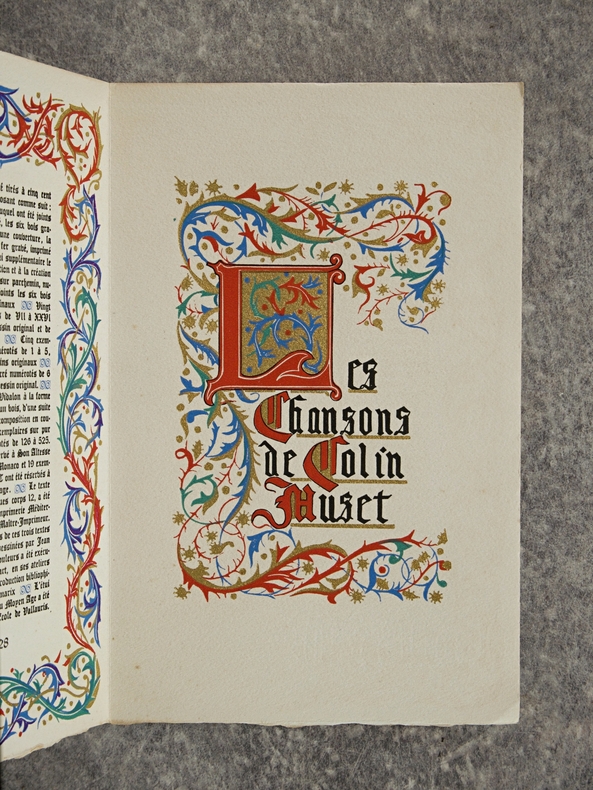 é tirés à cinq cent
posant comme suit :
uquel ont été joints
, les six bois gra-
une couverture, la
fer gravé, imprimé
i supplémentaire le
tion et à la création
sur parchemin, nu-
oints les six bois
inaux Vingt
s de VII à XXVI
ssin original et de
Cinq exem-
érotés de 1 à 5,
ins originaux
rré numérotés de 6
essin original.
Vidalon à la forme
un bois, d'une suite
composition en cou-
emplaires sur pur
tés de 126 à 525.
rbé à Son Altesse
Monaco et 19 exem-
C ont été réservés à
age. Le texte
ues corps 12, a été
mprimerie Méditer-
Maître-Imprimeur.
s de ces trois textes
essinées par Jean
ouleurs a été exécu-
art, en ses ateliers
roduction bibliophi-
marix L'étui
u Moyen Age a été
école de Vallauris.
28
Les
Chansons
de Colin
Muset